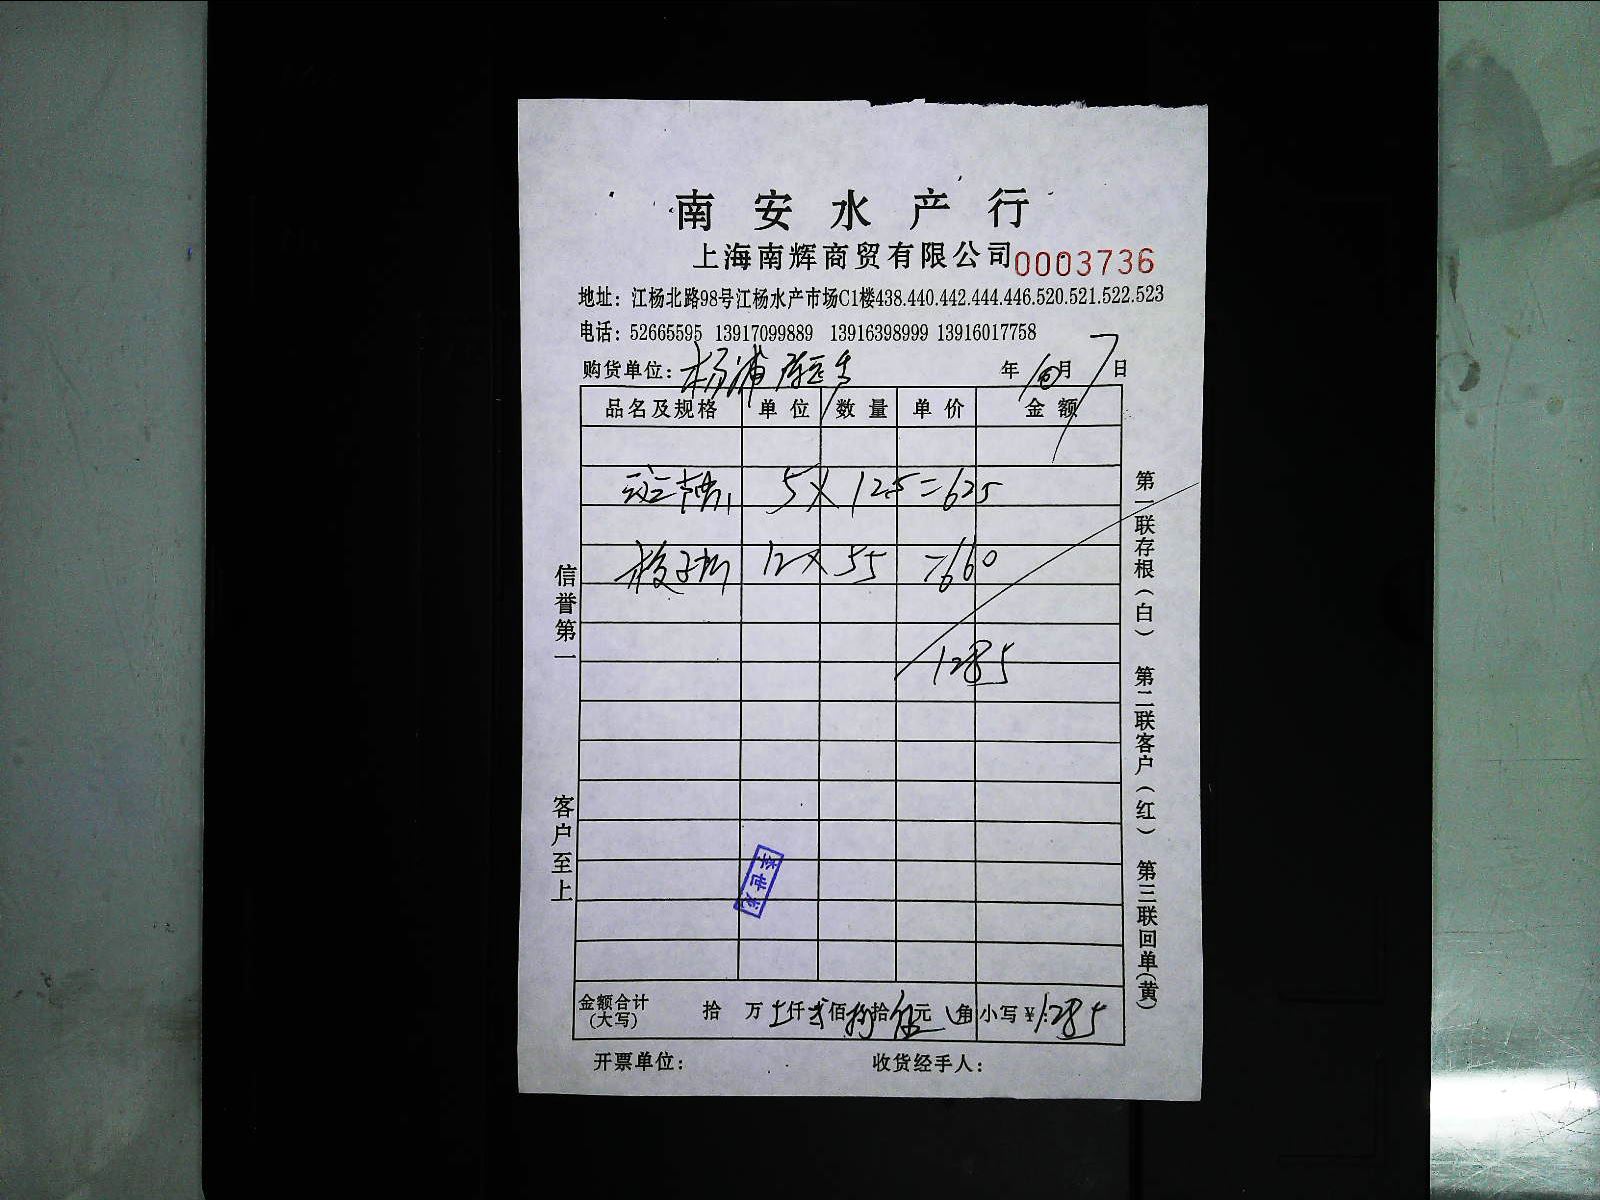 南安水产行
上海南辉商贸有限公司 0003736
地址：江杨北路98号江杨水产市场C1楼438.440.442.444.446.520.521.522.523
电话：52665595 13917099889 13916398999 13916017758
购货单位：杨浦 年 10月 7日
品名及规格 单位 数量 单价 金额
5 × 125 = 625
12 × 55 = 660
1285
信誉第一
客户至上
第一联存根（白） 第二联客户（红） 第三联回单（黄）
李世龙
金额合计（大写） 拾 万 仟 贰 佰 捌 拾 伍 元 角 小写￥：1285
开票单位： 收货经手人：